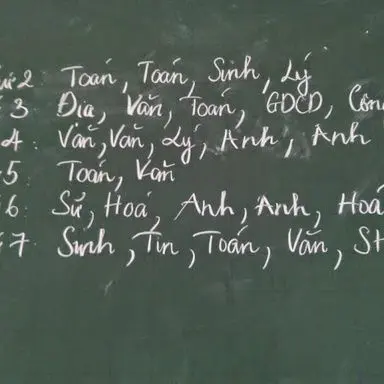 ứ 2: Toán, Toán, Sinh, Lý
3 Địa, Văn, Toán, GDCD, Côn
4: Văn, Văn, Lý, Anh, Anh
5: Toán, Văn
6: Sử, Hoá, Anh, Anh, Hoá
7: Sinh, Tin, Toán, Văn, SH